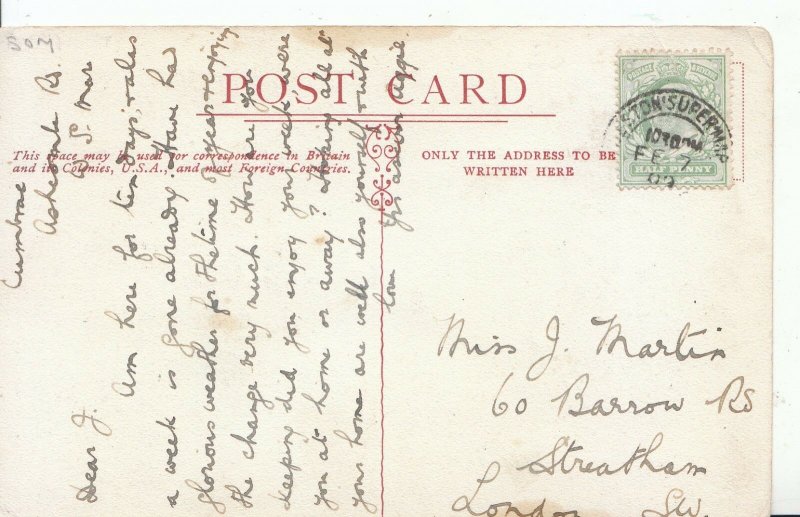 SOM
POST CARD
This space may be used for correspondence in Britain
and its Colonies, U.S.A., and most Foreign Countries.
ONLY THE ADDRESS TO BE
WRITTEN HERE
HALF PENNY
STON·SUPER·MA
FE 7
Cumbrae
Ashcombe Rd.
W. S. Mare
Dear J.
Am here for ten days,
a week is gone already. Have had
glorious weather for the time of year & enjoying
the change very much. How are you
keeping did you enjoy your week were
you at home or away? Hoping all at
your home are well also yourself with
love
Miss J. Martin
60 Barrow Rd
Streatham
London SW.